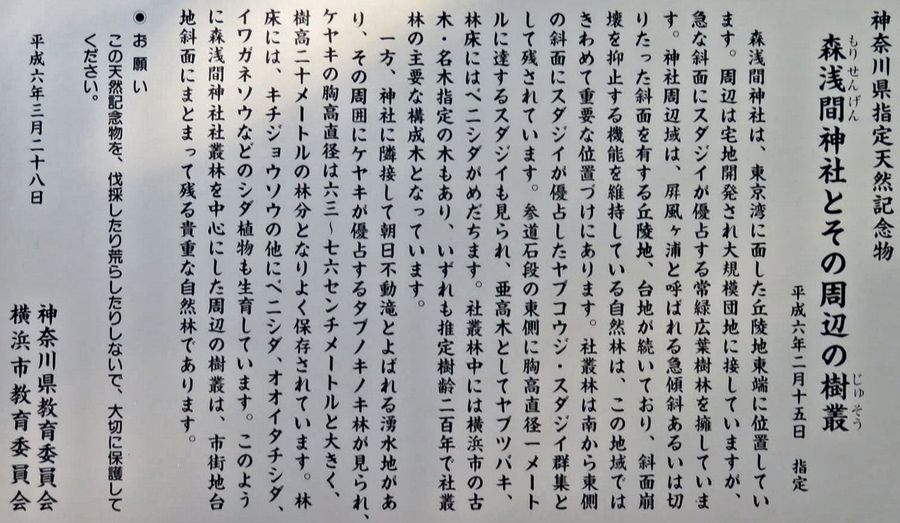 神奈川県指定天然記念物
森浅間神社とその周辺の樹叢
もりせんげん
じゅそう
平成六年二月十五日 指定
森浅間神社は、東京湾に面した丘陵地東端に位置してい
ます。周辺は宅地開発され大規模団地に接していますが、
急な斜面にスダジイが優占する常緑広葉樹林を擁していま
す。神社周辺域は、屏風ヶ浦と呼ばれる急傾斜あるいは切
りたった斜面を有する丘陵地、台地が続いており、斜面崩
壊を抑止する機能を維持している自然林は、この地域では
きわめて重要な位置づけにあります。社叢林は南から東側
の斜面にスダジイが優占したヤブコウジ・スダジイ群集と
して残されています。参道石段の東側に胸高直径一メート
ルに達するスダジイも見られ、亜高木としてヤブツバキ、
林床にはベニシダがめだちます。社叢林中には横浜市の古
木・名木指定の木もあり、いずれも推定樹齢二百年で社叢
林の主要な構成木となっています。
一方、神社に隣接して朝日不動滝とよばれる湧水地があ
り、その周囲にケヤキが優占するタブノキノキ林が見られ、
ケヤキの胸高直径は六三〜七六センチメートルと大きく、
樹高二十メートルの林分となりよく保存されています。林
床には、キチジョウソウの他にベニシダ、オオイタチシダ、
イワガネソウなどのシダ植物も生育しています。このよう
に森浅間神社社叢林を中心にした周辺の樹叢は、市街地台
地斜面にまとまって残る貴重な自然林であります。
●お願い
この天然記念物を、伐採したり荒らしたりしないで、大切に保護して
ください。
平成六年三月二十八日
神奈川県教育委員会
横浜市教育委員会